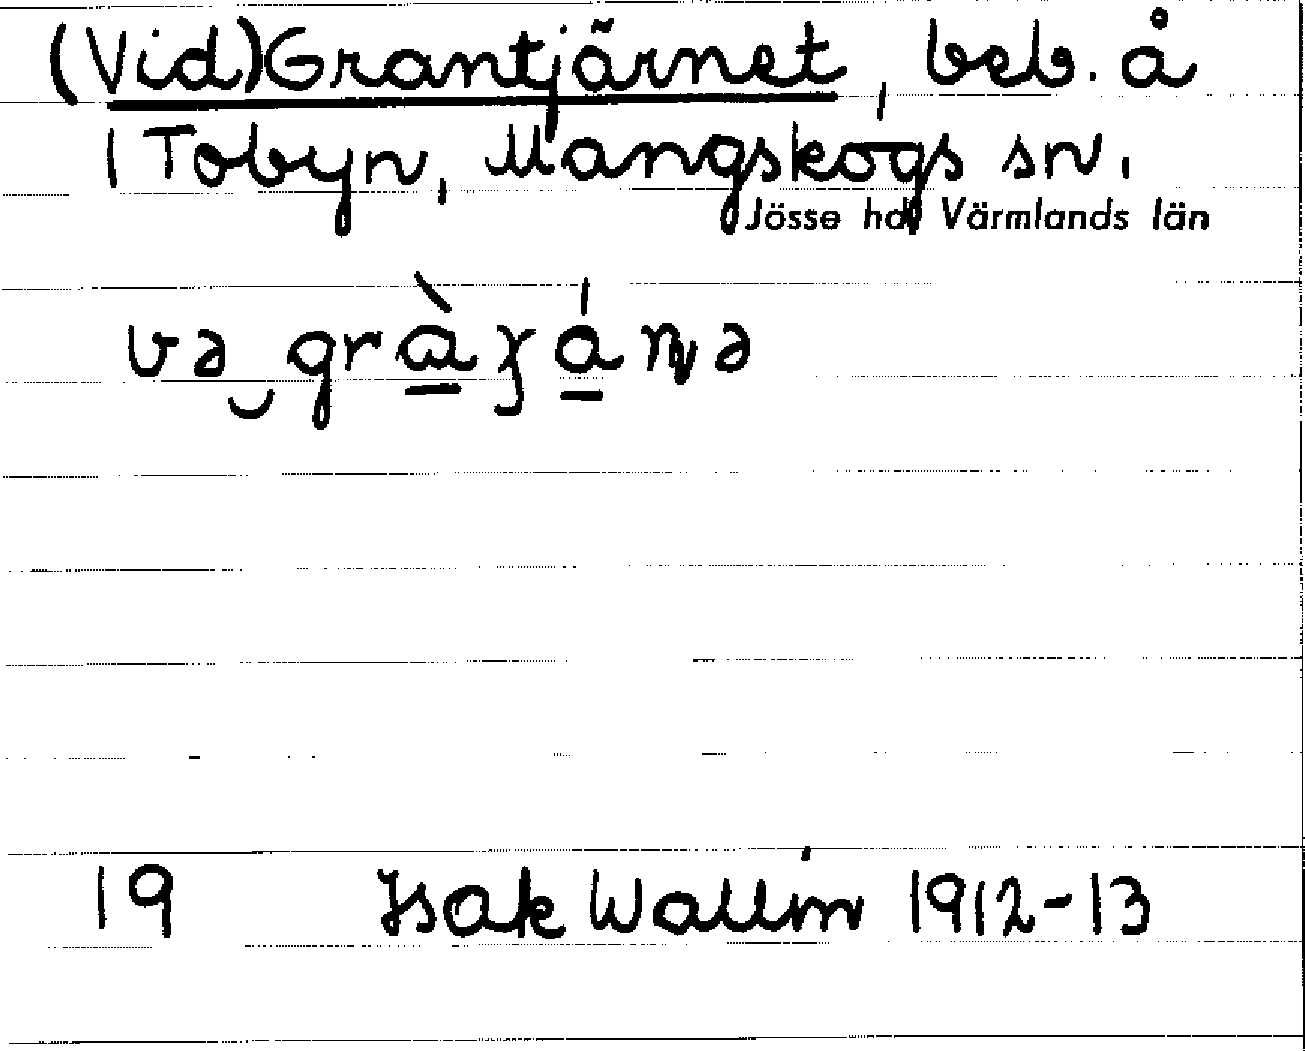 (Vid) Grantjärnet, beb. å
1 Tobyn, Mangskogs sn.
Jösse hd Värmlands län
19 Isak Wallin 1912-13